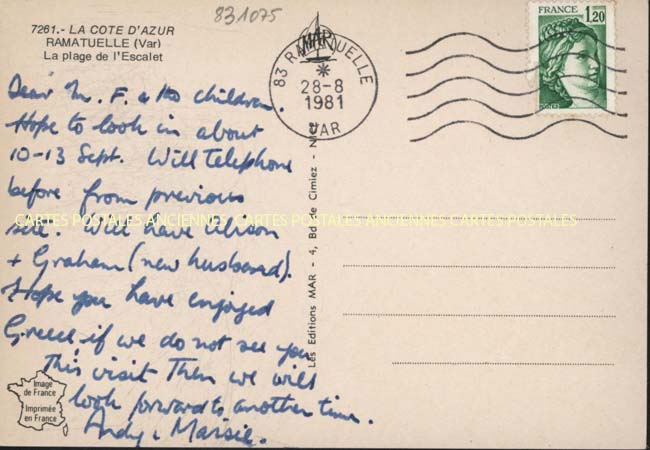 831075
7261.- LA COTE D'AZUR
RAMATUELLE (Var)
La plage de l'Escalet
MAR
83 RAMATUELLE
28-8
1981
VAR
FRANCE
1,20
Dear M. F. & the children.
Hope to look in about
10-13 Sept. Will Telephone
before from previous
site. Will have Alison
+ Graham (new husband).
Hope you have enjoyed
Greece if we do not see you
This visit Then we will
look forward to another time.
Andy & Maisie.
CARTES POSTALES ANCIENNES CARTES POSTALES ANCIENNES CARTES POSTALES
Les Editions MAR - 4, Bd de Cimiez - Nice
Image
de France
Imprimée
en France